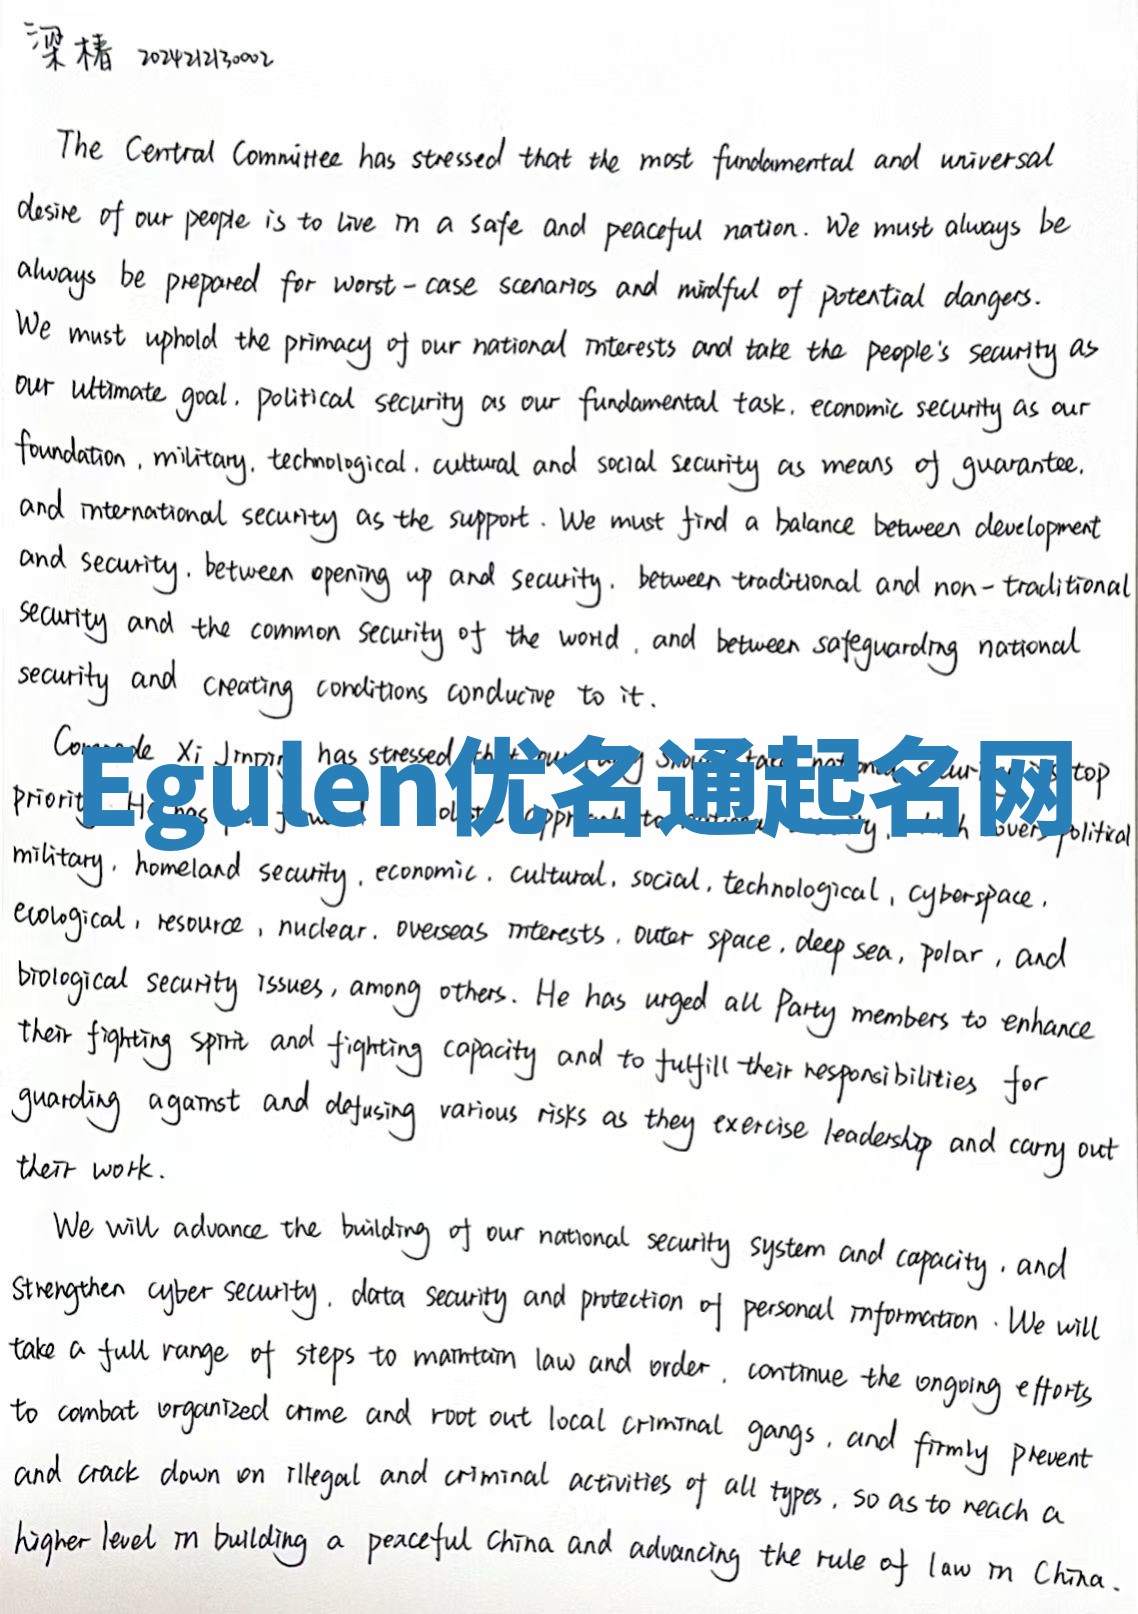 梁椿 2024212130002
The Central Committee has stressed that the most fundamental and universal
desire of our people is to live in a safe and peaceful nation. We must always be
always be prepared for worst-case scenarios and mindful of potential dangers.
We must uphold the primacy of our national interests and take the people's security as
our ultimate goal, political security as our fundamental task, economic security as our
foundation, military, technological, cultural and social security as means of guarantee,
and international security as the support. We must find a balance between development
and security, between opening up and security, between traditional and non-traditional
security and the common security of the world, and between safeguarding national
security and creating conditions conducive to it.
Xi Jinping has stressed top
Egulen优名通起名网
political
military, homeland security, economic, cultural, social, technological, cyberspace,
ecological, resource, nuclear, overseas interests, outer space, deep sea, polar, and
biological security issues, among others. He has urged all Party members to enhance
their fighting spirit and fighting capacity and to fulfill their responsibilities for
guarding against and defusing various risks as they exercise leadership and carry out
their work.
We will advance the building of our national security system and capacity, and
strengthen cyber security, data security and protection of personal information. We will
take a full range of steps to maintain law and order, continue the ongoing efforts
to combat organized crime and root out local criminal gangs, and firmly prevent
and crack down on illegal and criminal activities of all types, so as to reach a
higher level in building a peaceful China and advancing the rule of law in China.